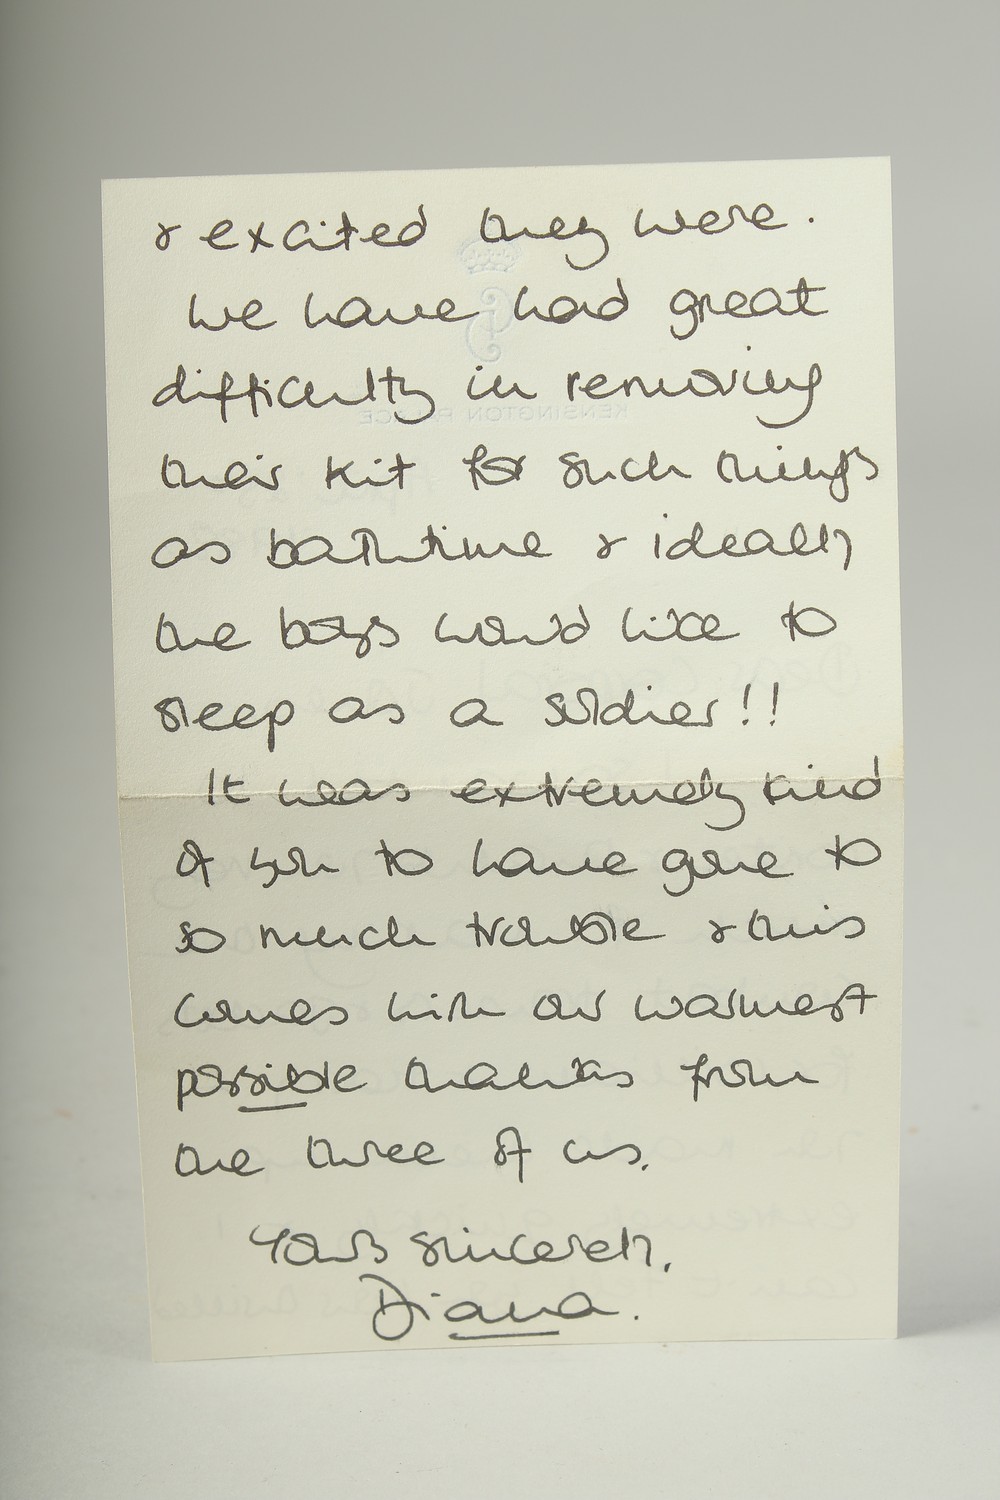 & excited they were.
We have had great
difficulty in removing
their kit for such things
as bathtime & ideally
the boys would like to
sleep as a soldier!!
It was extremely kind
of you to have gone to
so much trouble & this
comes with our warmest
possible thanks from
the three of us.
Yours sincerely,
Diana.
KENSINGTON PALACE